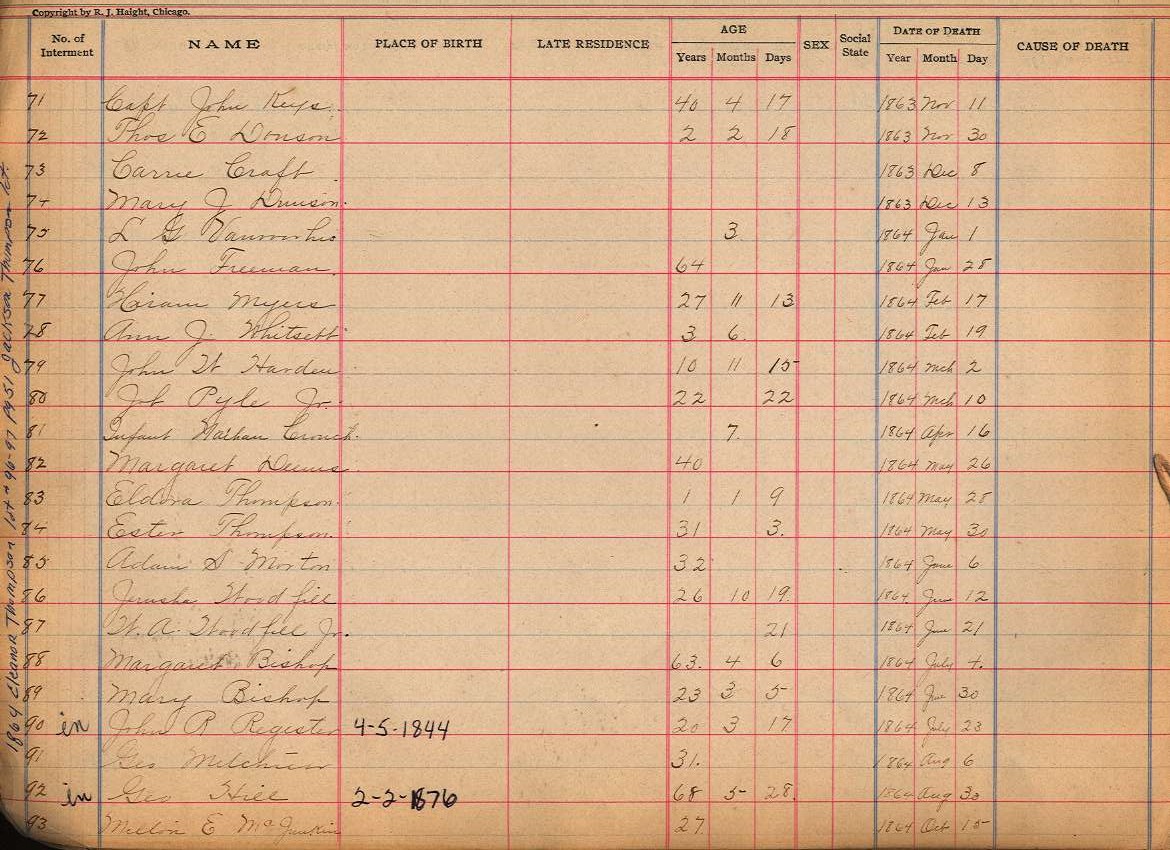 Copyright by R. J. Haight, Chicago.
No. of Interment NAME PLACE OF BIRTH LATE RESIDENCE AGE Years Months Days SEX Social State DATE OF DEATH Year Month Day CAUSE OF DEATH
71 Capt John Keys 40 4 17 1863 Nov 11
72 Thos E Donson 2 2 18 1863 Nov 30
73 Carrie Craft 1863 Dec 8
74 Mary J 1863 Dec 13
75 L G Vanvorhis 3 1864 Jan 1
76 John Freeman 64 1864 Jan 28
77 Hiram Myers 27 11 13 1864 Feb 17
78 Ann J. Whitsett 3 6 1864 Feb 19
79 John W Harden 10 11 15 1864 Mch 2
80 Job Pyle Jr. 22 22 1864 Mch 10
81 Infant Nathan Crouch 7 1864 Apr 16
82 Margaret 40 1864 May 26
83 Eldora Thompson 1 1 9 1864 May 28
84 Ester Thompson 31 3 1864 May 30
85 Adam S Morton 32 1864 June 6
86 Jerusha Woodfill 26 10 19 1864 June 12
87 W. A. Woodfill Jr. 21 1864 June 21
88 Margaret Bishop 63 4 6 1864 July 4
89 Mary Bishop 23 3 5 1864 June 30
90 in John R Register 4-5-1844 20 3 17 1864 July 23
91 Geo 31 1864 Aug 6
92 in Geo Hill 2-2-1876 68 5 28 1864 Aug 30
93 Milton E McJunkin 27 1864 Oct 15
1864 Eleanor Thompson lot 96-97 pg 51 Jackson Thompson lot